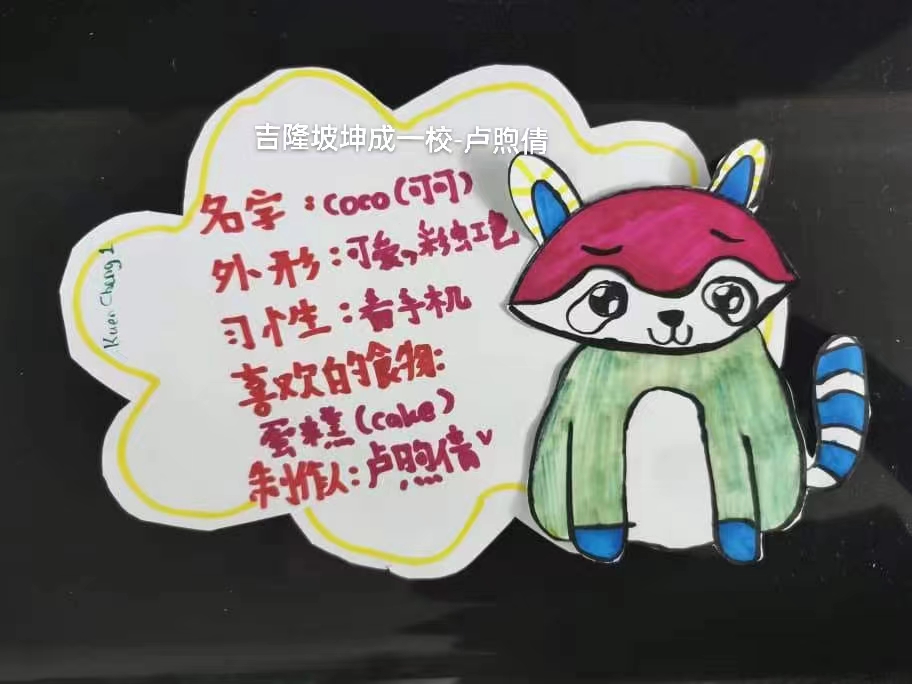 吉隆坡坤成一校-卢煦倩
名字：coco(可可)
外形：可爱,彩虹色
习性：看手机
喜欢的食物：
蛋糕(cake)
制作人：卢煦倩
Kuen Cheng 1